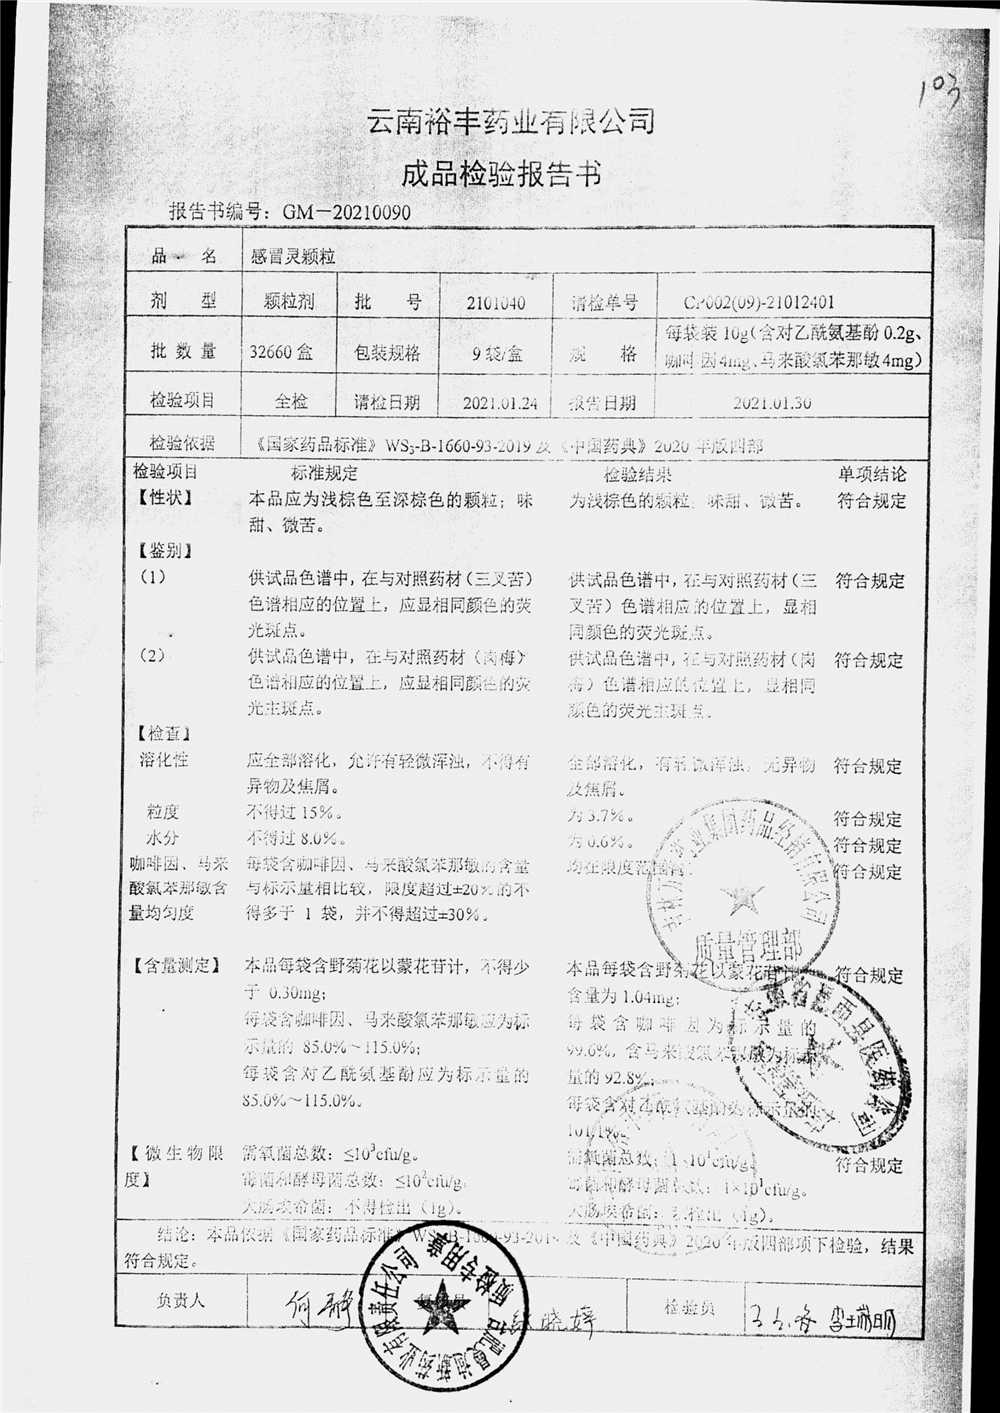 103
云南裕丰药业有限公司
成品检验报告书
报告书编号：GM－20210090
品 名 感冒灵颗粒
剂 型 颗粒剂 批 号 2101040 请检单号 CP002(09)-21012401
批 数 量 32660盒 包装规格 9袋/盒 规 格 每袋装10g(含对乙酰氨基酚0.2g、
咖啡因4mg、马来酸氯苯那敏4mg)
检验项目 全检 请检日期 2021.01.24 报告日期 2021.01.30
检验依据 《国家药品标准》WS3-B-1660-93-2019及《中国药典》2020年版四部
检验项目 标准规定 检验结果 单项结论
【性状】 本品应为浅棕色至深棕色的颗粒；味 为浅棕色的颗粒；味甜、微苦。 符合规定
甜、微苦。
【鉴别】
（1） 供试品色谱中，在与对照药材（三叉苦） 供试品色谱中，在与对照药材（三 符合规定
色谱相应的位置上，应显相同颜色的荧 叉苦）色谱相应的位置上，显相
光斑点。 同颜色的荧光斑点。
（2） 供试品色谱中，在与对照药材（岗梅） 供试品色谱中，在与对照药材（岗 符合规定
色谱相应的位置上，应显相同颜色的荧 梅）色谱相应的位置上，显相同
光主斑点。 颜色的荧光主斑点。
【检查】
溶化性 应全部溶化，允许有轻微浑浊，不得有 全部溶化，有轻微浑浊，无异物 符合规定
异物及焦屑。 及焦屑。
粒度 不得过15%。 为3.7%。 符合规定
水分 不得过8.0%。 为0.6%。 符合规定
咖啡因、马来 每袋含咖啡因、马来酸氯苯那敏的含量 均在限度范围内。 符合规定
酸氯苯那敏含 与标示量相比较，限度超过±20%的不
量均匀度 得多于 1 袋，并不得超过±30%。
【含量测定】 本品每袋含野菊花以蒙花苷计，不得少 本品每袋含野菊花以蒙花苷计 符合规定
于 0.30mg； 含量为1.04mg；
每袋含咖啡因、马来酸氯苯那敏应为标 每袋含咖啡因为标示量的
示量的 85.0%～115.0%； 99.6%，含马来酸氯苯那敏为标示
每袋含对乙酰氨基酚应为标示量的 量的92.8%；
85.0%～115.0%。 每袋含对乙酰氨基酚为标示量的
101.1%。
【微生物限 需氧菌总数：≤10³cfu/g。 需氧菌总数：1×10¹cfu/g。 符合规定
度】 霉菌和酵母菌总数：≤10²cfu/g。 霉菌和酵母菌总数：1×10¹cfu/g。
大肠埃希菌：不得检出（1g）。 大肠埃希菌：未检出（1g）。
结论：本品依据《国家药品标准》WS3-B-1660-93-2019及《中国药典》2020年版四部项下检验，结果
符合规定。
负责人 何静 复核员 徐晓婷 检验员
质量管理部
质检专用章